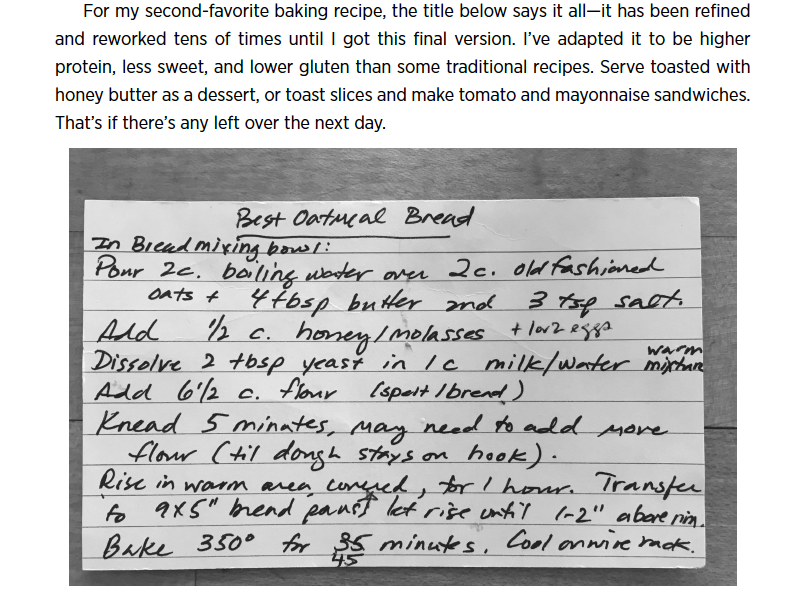 For my second-favorite baking recipe, the title below says it all—it has been refined
and reworked tens of times until I got this final version. I’ve adapted it to be higher
protein, less sweet, and lower gluten than some traditional recipes. Serve toasted with
honey butter as a dessert, or toast slices and make tomato and mayonnaise sandwiches.
That’s if there’s any left over the next day.
Best Oatmeal Bread
In Bread mixing bowl:
Pour 2c. boiling water over 2c. old fashioned
oats + 4 tbsp butter and 3 tsp salt.
Add 1/2 c. honey/molasses + 1 or 2 eggs
Dissolve 2 tbsp yeast in 1 c milk/water warm mixture
Add 6 1/2 c. flour (spelt/bread)
Knead 5 minutes, may need to add more
flour (til dough stays on hook).
Rise in warm area covered, for 1 hour. Transfer
to 9x5" bread pans & let rise until 1-2" above rim.
Bake 350° for 35 minutes. Cool on wire rack.
45